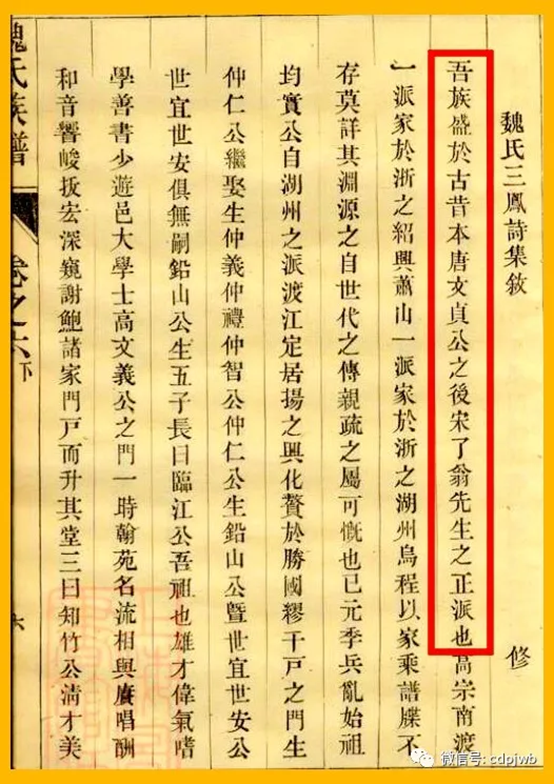 魏氏三鳳詩集敘
修
吾族盛於古昔本唐文貞公之後宋了翁先生之正派也高宗南渡
一派家於浙之紹興蕭山一派家於浙之湖州烏程以家乘譜牒不
存莫詳其淵源之自世代之傳親疏之屬可慨也已元季兵亂始祖
均實公自湖州之派渡江定居揚之興化贅於勝國繆千戸之門生
仲仁公繼娶生仲義仲禮仲智公仲仁公生鉛山公暨世宜世安公
世宜世安俱無嗣鉛山公生五子長曰臨江公吾祖也雄才偉氣嗜
學善書少遊邑大學士高文義公之門一時翰苑名流相與賡唱酬
和音響峻拔宏深窺謝鮑諸家門戸而升其堂三曰知竹公淸才美
魏氏族譜
卷之六下
六
微信号: cdpjwb